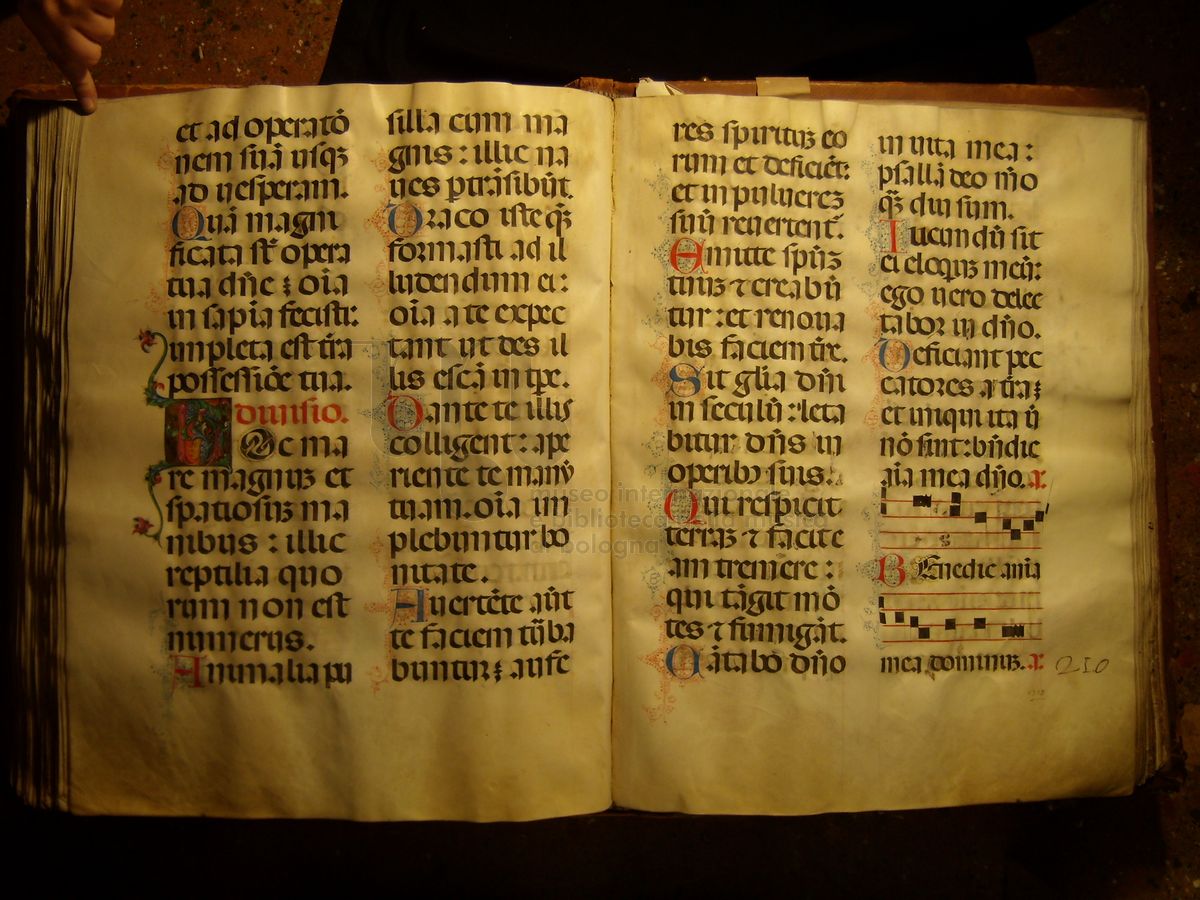 et ad operatō
nem suā usqꝫ
ad uesperam.
Quā magni
ficata st̄ opera
tua dn̄e ⁊ oīa
in sapīa fecisti:
impleta est tr̄a
possessiōe tua.
diuisio.
Oc ma
re magnuꝫ et
spatiosuꝫ ma
nibus : illic
reptilia quo
rum non est
numerus.
Animalia pu
silla cum ma
gnis : illic na
ues ꝑtrāsibūt.
Draco iste qꝫ
formasti ad il
ludendum ei:
oīa a te expec
tant ut des il
lis escā in tꝑe.
Dante te illis
colligent : ape
riente te manū
tuam. oīa im
plebuntur bo
nitate.
Auertēte aūt
te faciem tūba
buntur ⁊ aufe
res spirituꝫ eo
rum et deficiēt:
et in puluereꝫ
suū reuertent.
Emitte spūꝫ
tuuꝫ ⁊ creabū
tur : et renoua
bis faciem tr̄e.
Sit glīa dn̄i
in seculū : leta
bitur dn̄s in
operibꝫ suis.
Qui respicit
terraꝫ ⁊ facit e
am tremere :
qui tāgit mō
tes ⁊ fumigāt.
Cātabo dn̄o
in uita mea :
psallā deo m̄o
qꝫ diu sum.
Iucundū sit
ei eloquiꝫ meū:
ego uero delec
tabor in dn̄o.
Deficiant pec
catores a tr̄a ⁊
et iniqui ita ū
nō sint : bn̄dic
aīa mea dn̄o. a
BEnedic aīa
mea dominuꝫ. a
210
museo internazionale
e biblioteca della musica
di bologna